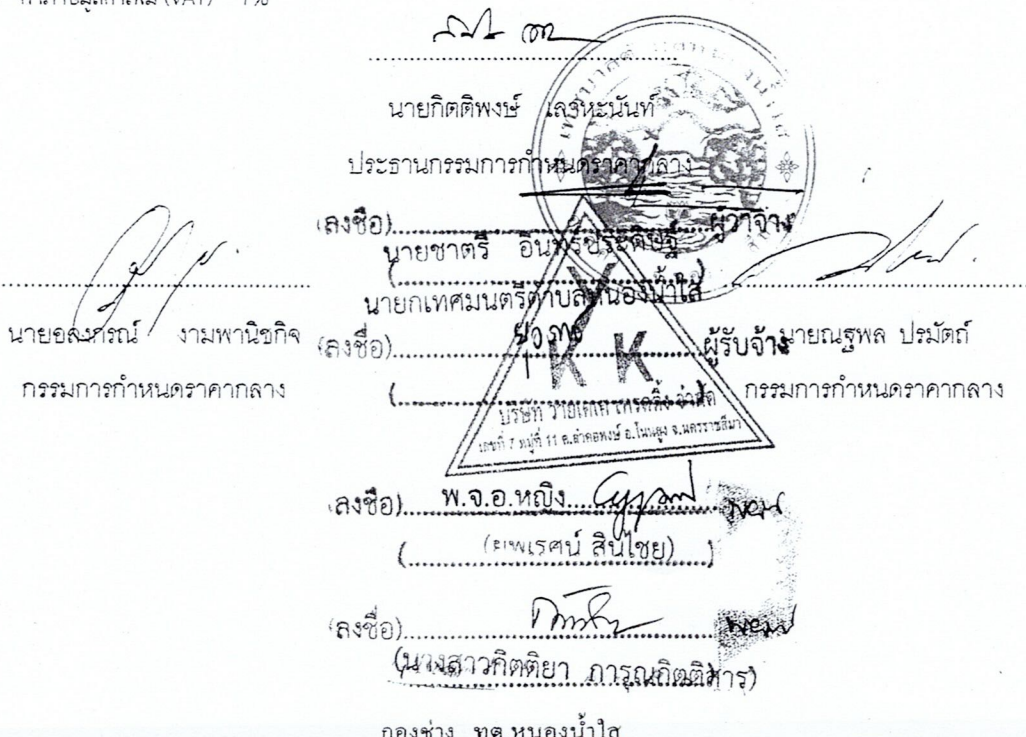 ค่าภาษีมูลค่าเพิ่ม (VAT) 7%
นายกิตติพงษ์ เลาหะนันท์
ประธานกรรมการกำหนดราคากลาง
(ลงชื่อ) ผู้ว่าจ้าง
นายชาตรี อินทร์ประดิษฐ์
นายกเทศมนตรีตำบลหนองน้ำใส
นายอลงกรณ์ งามพานิชกิจ
(ลงชื่อ) ผู้รับจ้าง
นายณฐพล ปรมัตถ์
กรรมการกำหนดราคากลาง
กรรมการกำหนดราคากลาง
Y
K K
บริษัท วายเคเค เทรดดิ้ง จำกัด
เลขที่ 7 หมู่ที่ 11 ต.ลำคอหงษ์ อ.โนนสูง จ.นครราชสีมา
(ลงชื่อ) พ.จ.อ.หญิง พยาน
(ยุพเรศน์ สินไชย)
(ลงชื่อ) พยาน
(นางสาวกิตติยา การุณกิตติสาร)
กองช่าง ทต.หนองน้ำใส